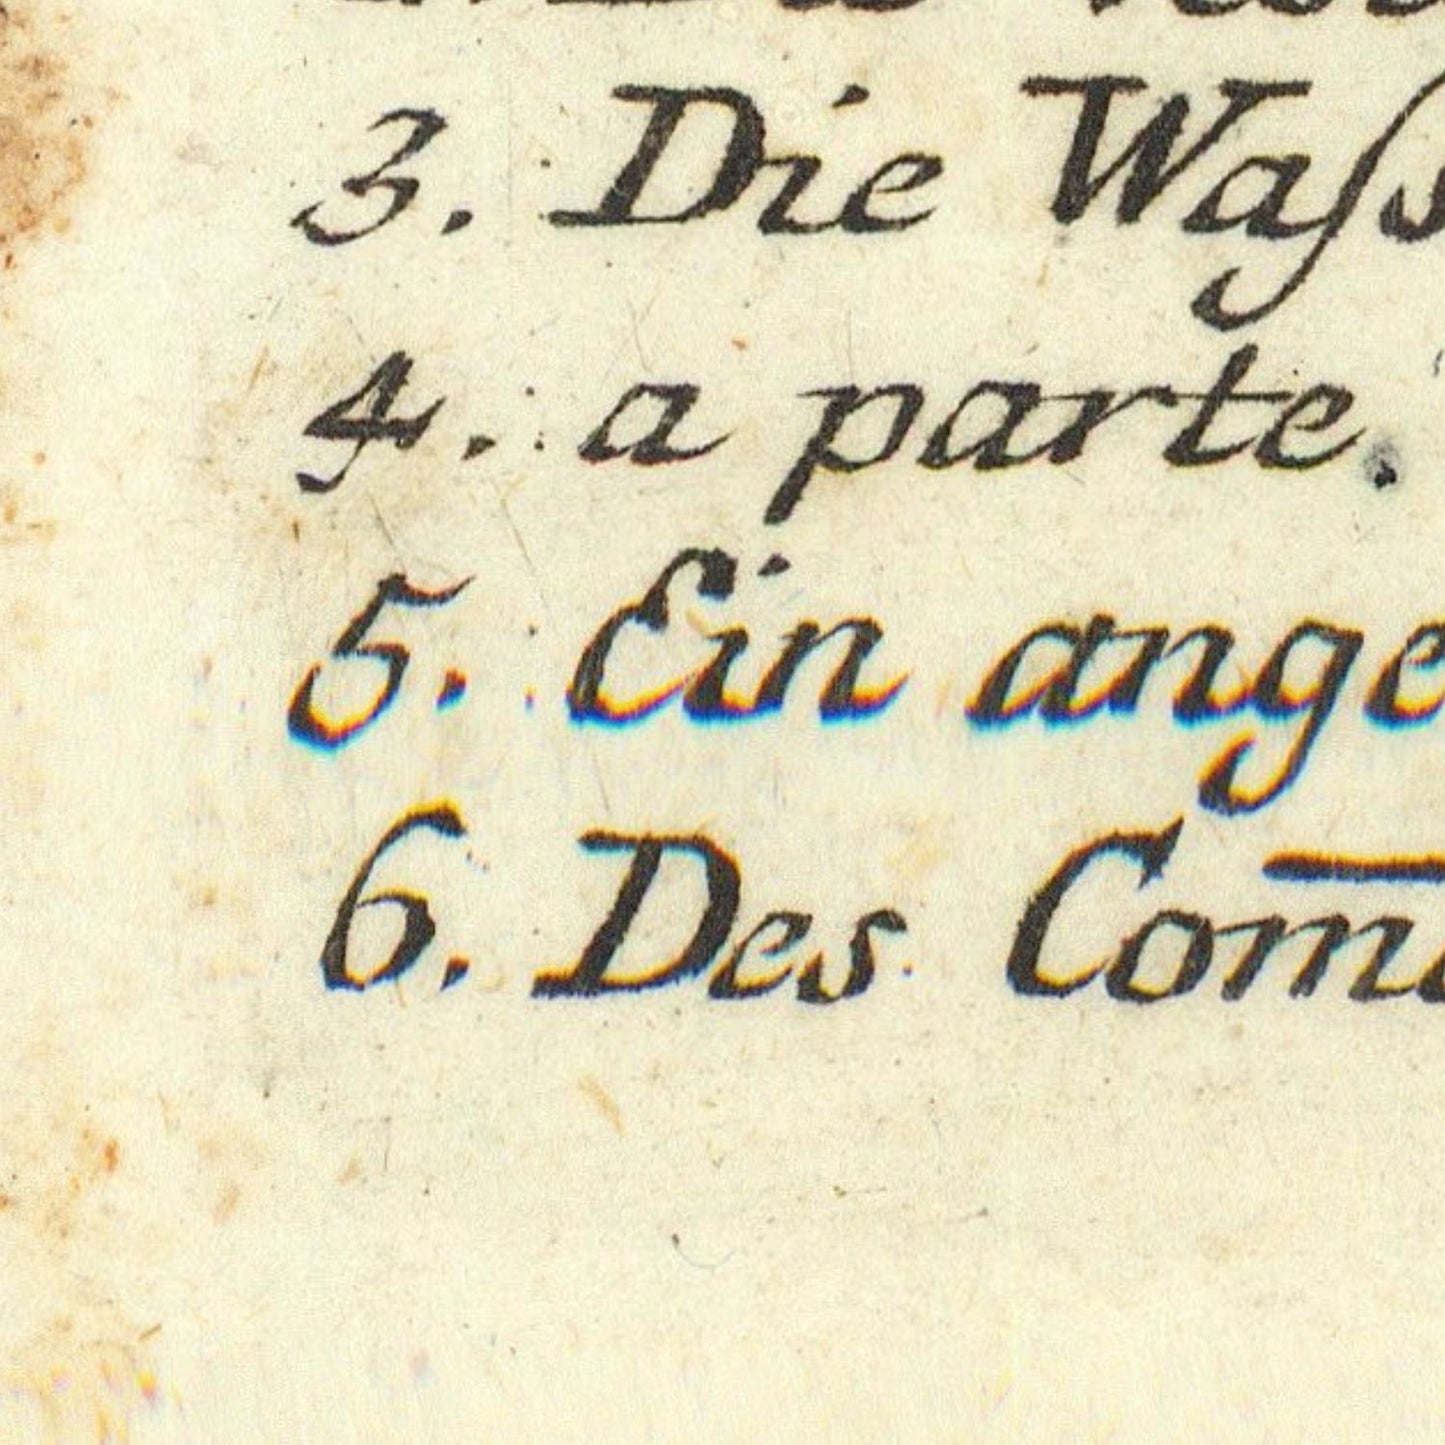 Die
3. Die Waſs
4. a parte.
5. Ein ange
6. Des Com̄a